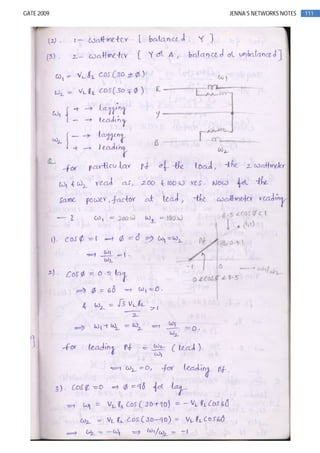 GATE 2009
JENNA'S NETWORKS NOTES 111
(2). 1 - wattmeter [ balanced . Y ]
(3). 2 - wattmeter { Y or Δ , balanced or unbalanced }
ω₁ = V_L I_L cos (30 ± ϕ)
ω₁
ω₂ = V_L I_L cos (30 ∓ ϕ)
R
ω₁ { + → lagging
- → leading
Y
ω₂ { - → lagging
+ → leading
B
ω₂
for particular Pf of the load, the 2 wattmeter
ω₁ & ω₂ read as, 200 & 100 W res. Now for the
same power factor at lead, the wattmeter reading
- ? ω₁ = 200W ω₂ = 100W
0.5 < cos ϕ < 1
(1,1)
1). cos ϕ = 1 → ϕ = 0 ⇒ ω₁ = ω₂
Pf
→ ω₁/ω₂ = 1.
-1 0
2). cos ϕ = 0.5 lag
0 < cos ϕ < 0.5
⇒ ϕ = 60 → ω₁ = 0.
& ω₂ = √3 V_L I_L / 2
⇒ ω₁ + ω₂ = ω₂ → ω₁/ω₂ = 0.
for leading Pf = ω₂/ω₁ (lead).
→ ω₂ = 0, for leading Pf.
3). cos ϕ = 0 → ϕ = 90 for lag
→ ω₁ = V_L I_L cos (30+90) = - V_L I_L cos 60
ω₂ = V_L I_L cos (30-90) = V_L I_L cos 60
⇒ ω₂ = -ω₁ ⇒ ω₁/ω₂ = -1